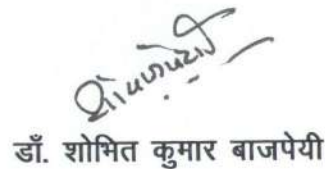 डॉ. शोभित कुमार बाजपेयी